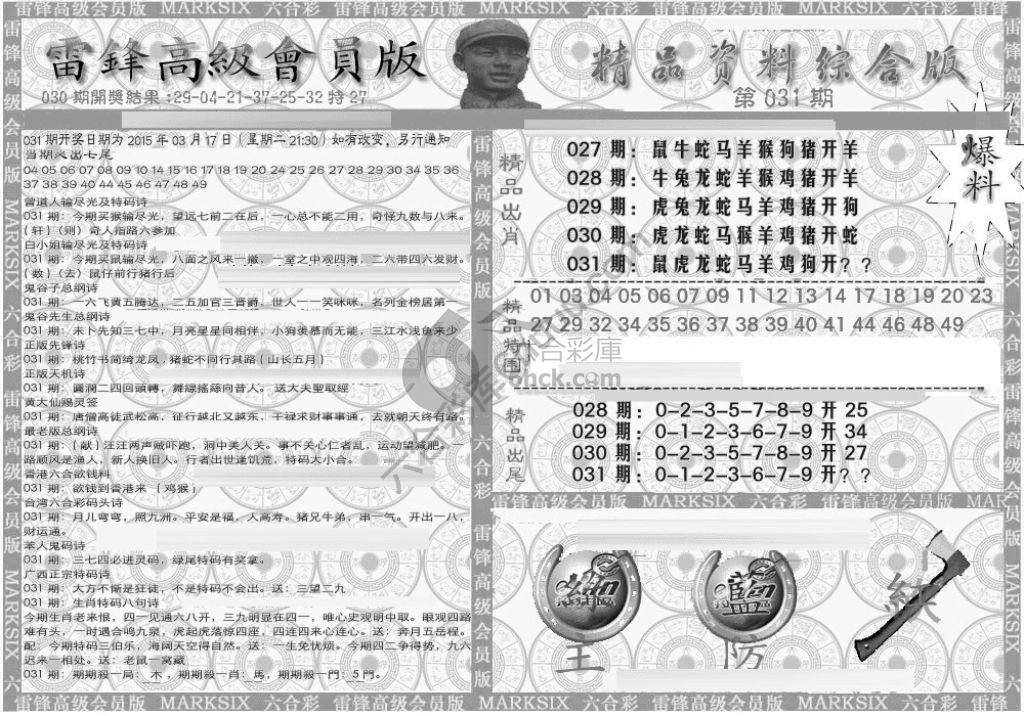 雷锋高级会员版 MARKSIX 六合彩 雷锋高级会员版 MARKSIX 六合彩 雷锋高级会员版 MARKSIX 六合彩 雷锋
雷鋒高級會員版
030 期開獎結果:29-04-21-37-25-32 特 27
精品资料综合版
第 031 期
爆料
031 期开奖日期为 2015 年 03 月 17 日（星期二 21:30）如有改变，另行通知
当期必出七尾
04 05 06 07 08 09 10 14 15 16 17 18 19 20 24 25 26 27 28 29 30 34 35 36
37 38 39 40 44 45 46 47 48 49
曾道人输尽光及特码诗
031 期：今期买猴输尽光，望远七前二在后，一心总不能二用，奇怪九数与八来。
{轩}（则）奇人指路六参加
白小姐输尽光及特码诗
031 期：今期买鼠输尽光，八面之风来一撤，一室之中观四海，二六带四六发财。
{数}（去）鼠仔前行猪行后
鬼谷子总纲诗
031 期：一六飞黄五腾达，二五加官三晋爵，世人一一笑咪咪，名列金榜居第一
鬼谷先生总纲诗
031 期：未卜先知三七中，月亮星星同相伴，小狗羡慕而无能，三江水浅鱼来少
正版先锋诗
031 期：桃竹书简绮龙凤，猪蛇不同行其路（山长五月）
正版天机诗
031 期：圓潤二四回頭轉，舞繚搖絲向昔人。送大夫聖取經
黄大仙赐灵签
031 期：唐僧高徒武松高，征行越北又越东，干禄求财事事通，去就朝天终有路。
最老版总纲诗
031 期：（献）汪汪两声贼吓跑，洞中美人关。事不关心仁者乱，运动望减肥。一
路顺风是渔人，新人换旧人。行者出世逢饥荒，特码大小合。
香港六合欲钱料
031 期：欲钱到香港来 （鸡猴）
台湾六合彩码头诗
031 期：月儿弯弯，照九洲。平安是福，人高寿。猪兄牛弟，串一气。开出一八，
财运通。
苯人鬼码诗
031 期：三七四必进灵码，绿尾特码有奖拿。
广西正宗特码诗
031 期：大方不惭是狂徒，不是特码不会出。送：三望二九
031 期：生肖特码八句诗
今期生肖老来恨，四一见通六八开，三九明显在四一，唯心史观明中取。眼观四路
难有头，一时遇合鸣九泉，虎起虎落惊四座，四连四来心连心。送：奔月五岳程。
配：今期特码三伯乐，海阔天空得自然。送：一生免忧烦。今期四二争得势，九六
迟来一相处。送：老鼠一窝藏
031 期：期期殺一局：木，期期殺一肖：馬，期期殺一門：5 門。
精品出肖
027 期：鼠牛蛇马羊猴狗猪开羊
028 期：牛兔龙蛇羊猴鸡猪开羊
029 期：虎兔龙蛇马羊鸡猪开狗
030 期：虎龙蛇马猴羊鸡猪开蛇
031 期：鼠虎龙蛇马羊鸡狗开？？
精品特围
01 03 04 05 06 07 09 11 12 13 14 17 18 19 20 23
27 29 32 34 35 36 37 38 39 40 41 44 46 48 49
六合彩库
精品出尾
028 期：0-2-3-5-7-8-9 开 25
029 期：0-1-2-3-6-7-8-9 开 34
030 期：0-1-2-3-6-7-8-9 开 27
031 期：0-1-2-3-6-7-9 开？？
雷锋高级会员版 MARKSIX 六合彩 雷锋高级会员版 MARKSIX
主
防
雷锋高级会员版 MARKSIX 六合彩 雷锋高级会员版 MARKSIX 六合彩 雷锋高级会员版 MARKSIX 六合彩 雷锋